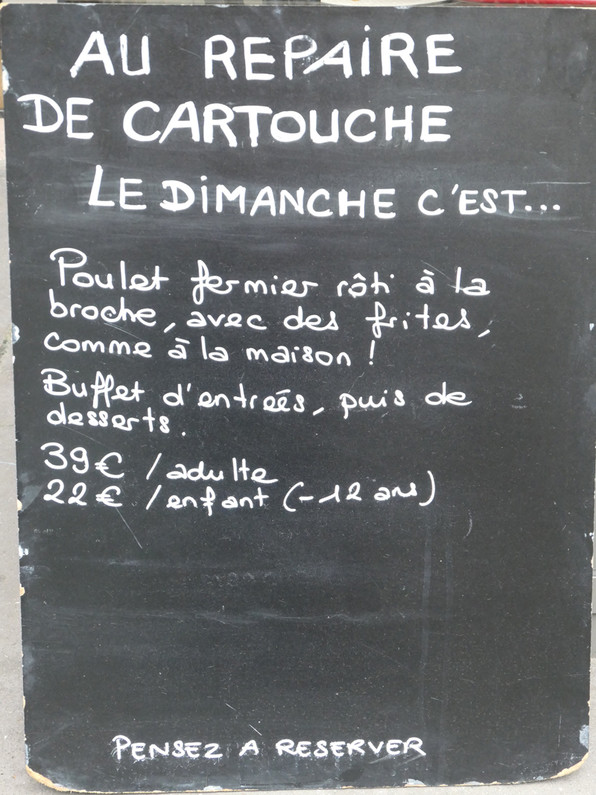 AU REPAiRE
DE CARTOUCHE
LE DiMANCHE C'EST...
Poulet fermier rôti à la
broche, avec des frites,
comme à la maison !
Buffet d'entreés, puis de
desserts.
39€ / adulte
22€ / enfant (-12 ans)
PENSEZ A RESERVER